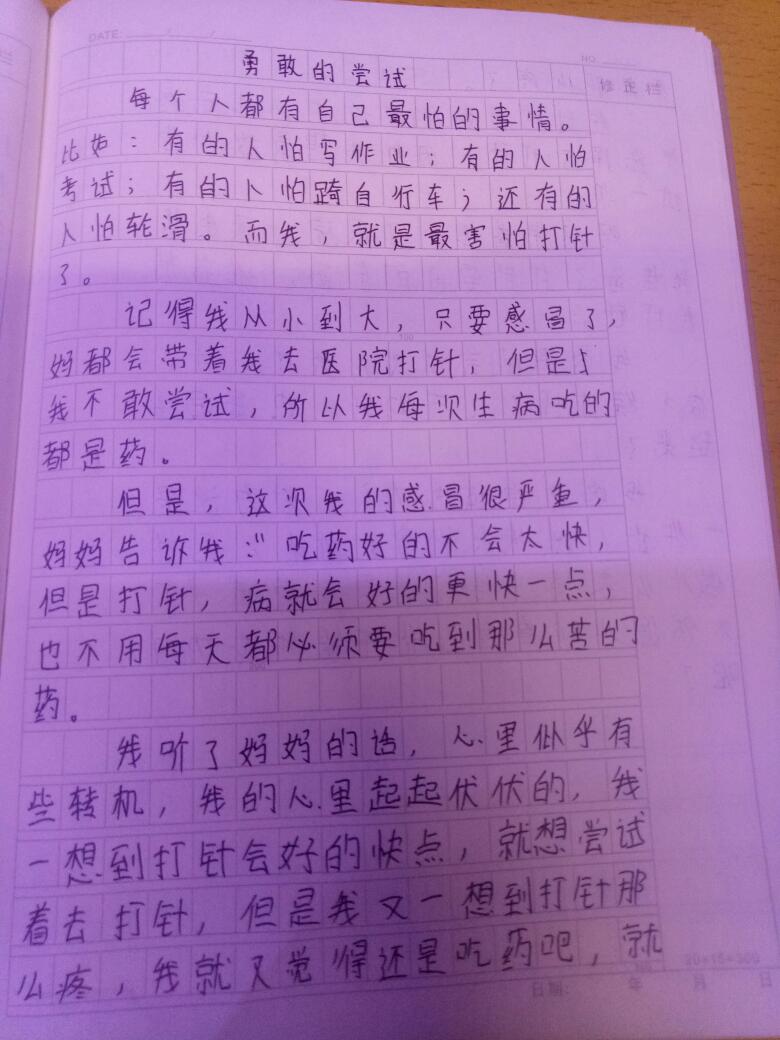 DATE:
NO
勇敢的尝试
修正栏
每个人都有自己最怕的事情。
比如：有的人怕写作业；有的人怕
考试；有的人怕骑自行车；还有的
人怕轮滑。而我，就是最害怕打针
了。
记得我从小到大，只要感冒了，
100
妈都会带着我去医院打针，但是
我不敢尝试，所以我每次生病吃的
都是药。
但是，这次我的感冒很严重，
妈妈告诉我：“吃药好的不会太快，
但是打针，病就会好的更快一点，
也不用每天都必须要吃到那么苦的
药。
我听了妈妈的话，心里似乎有
些转机，我的心里起起伏伏的，我
一想到打针会好的快点，就想尝试
着去打针，但是我又一想到打针那
么疼，我就又觉得还是吃药吧，就
20×15=300
日期： 年 月 日